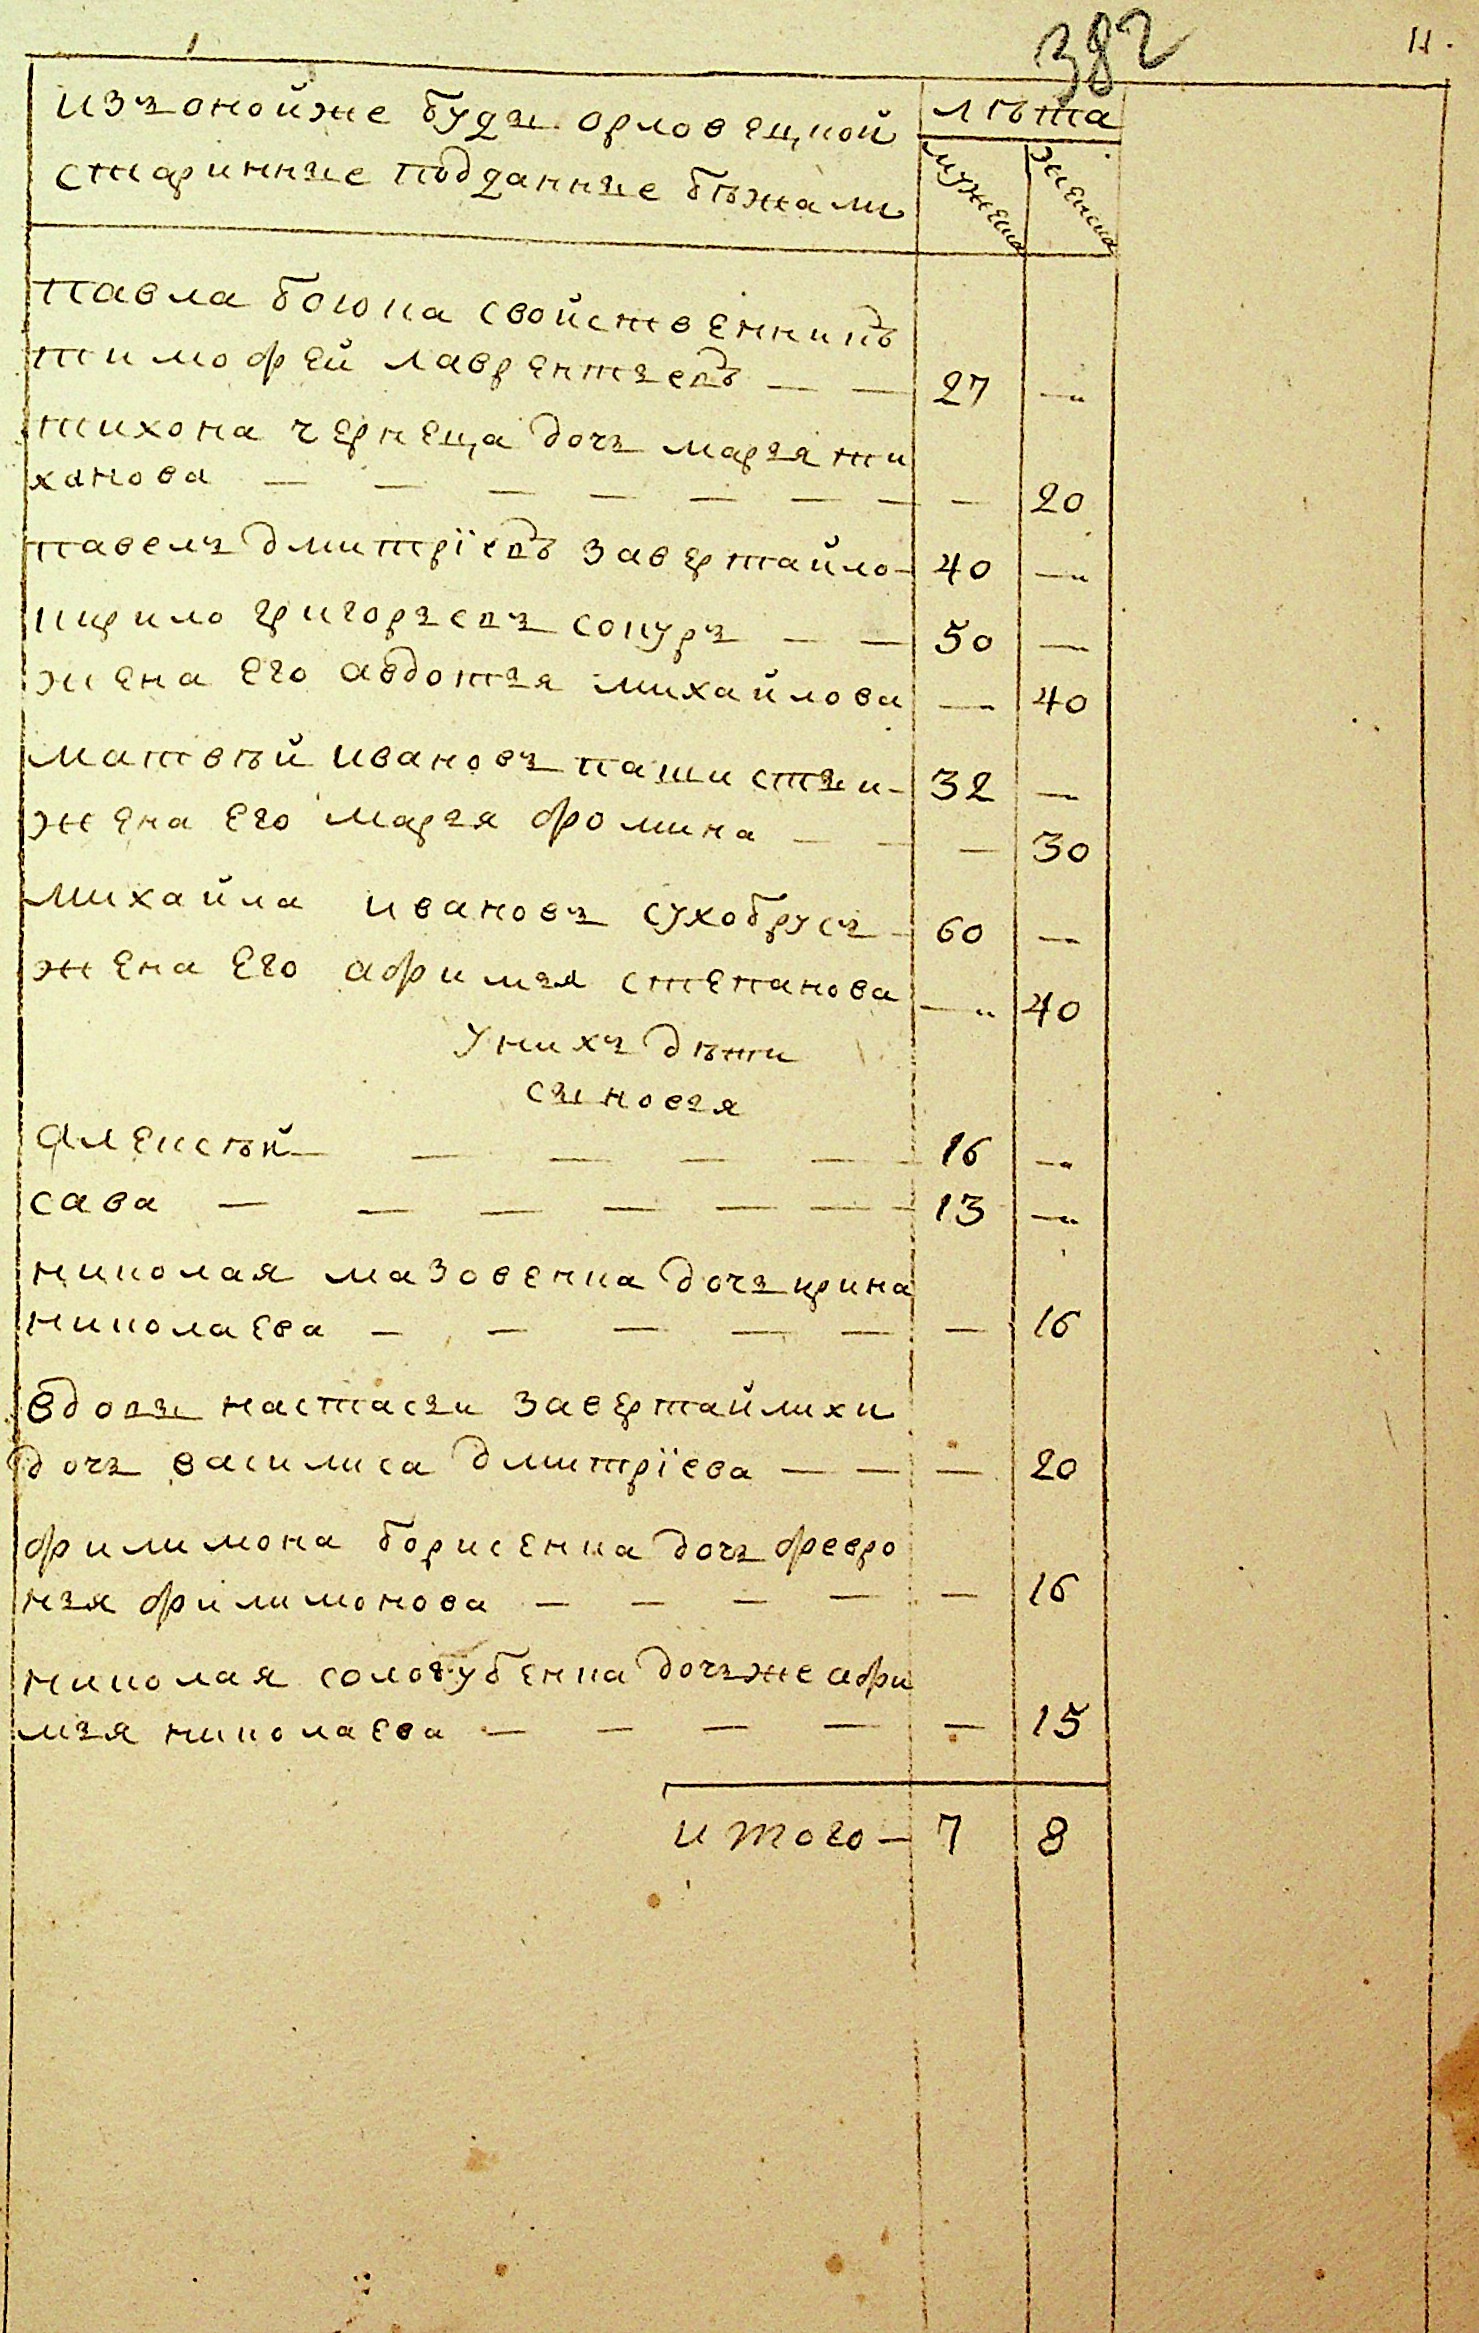 382
11.
изъ оной же буды орловецкой
лѣта
старинные подданные бѣжали
мужеска
женска
павла боюка свойственникъ
тимофей лаврентьевъ — — 27 —
тихона чернеца дочь марья ти
ханова — — — — — — — — 20
павелъ дмитрїевъ завертайло — 40 —
кирило григорьевъ сокуръ — — 50 —
жена его авдотья михайлова — 40
матвѣй ивановъ пашистый — 32 —
жена его марья фомина — — — 30
михайла ивановъ сухобрусъ — 60 —
жена его афимья степанова — 40
у нихъ дѣти
сыновья
алексѣй — — — — — 16 —
сава — — — — — — — 13 —
николая мазовенка дочь ирина
николаева — — — — — — 16
вдовы настасьи завертайлихи
дочь василиса дмитрїева — — — 20
филимона борисенка дочь февро
нья филимонова — — — — — 16
николая сологубенка дочь же афи
мья николаева — — — — — 15
итого — 7 8